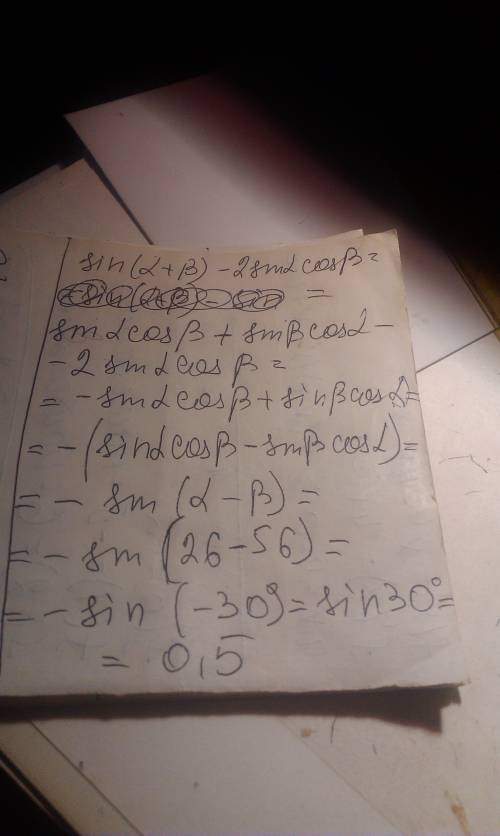 sin(α+β) - 2sinα cosβ =
=
sinα cosβ + sinβ cosα -
- 2 sinα cosβ =
= - sinα cosβ + sinβ cosα =
= - (sinα cosβ - sinβ cosα) =
= - sin (α - β) =
= - sin (26 - 56) =
= - sin (-30°) = sin30° =
= 0,5